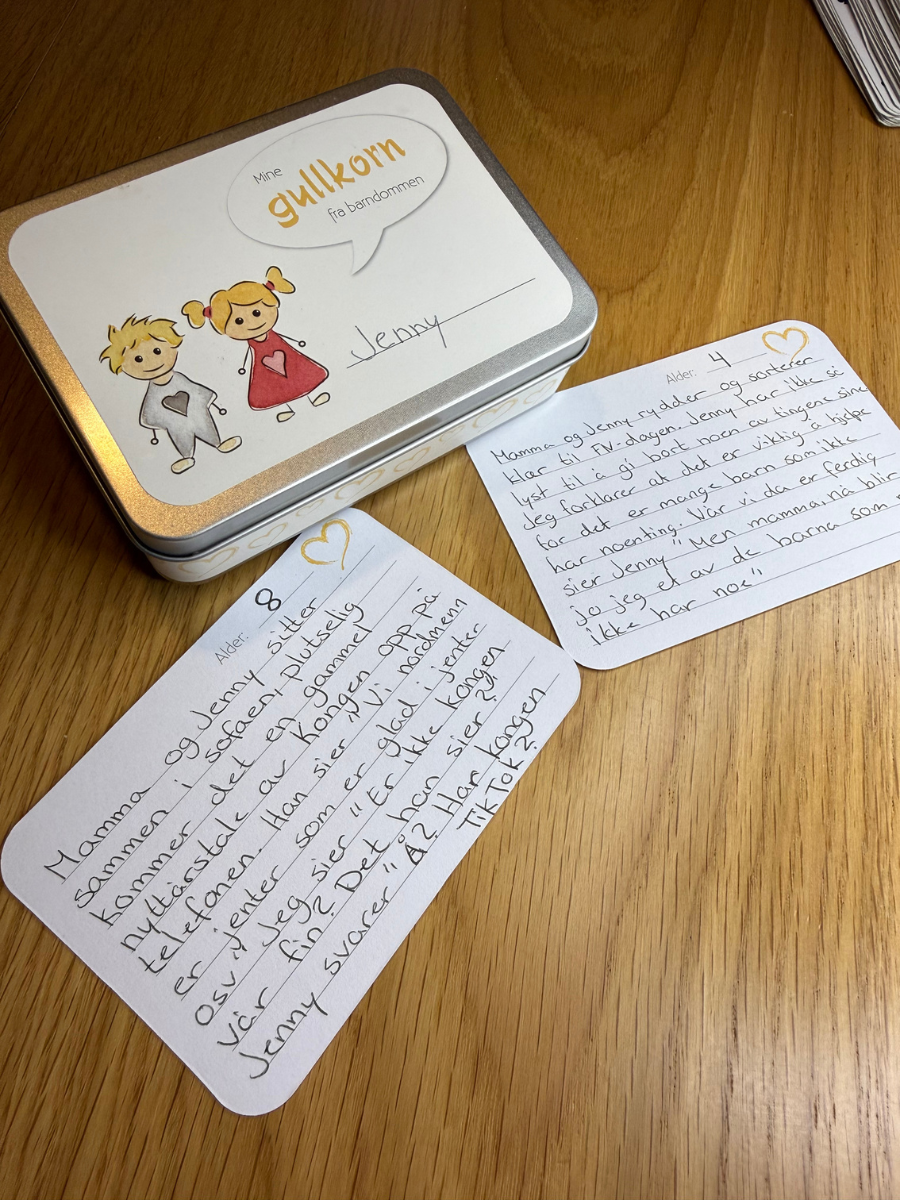 Mine
gullkorn
fra barndommen
Jenny
Alder: 4
Mamma og Jenny rydder og sorterer
klær til FN-dagen. Jenny har ikke så
lyst til å gi bort noen av tingene sine
Jeg forklarer at det er viktig å hjelpe
for det er mange barn som ikke
har noenting. Når vi da er ferdig
sier Jenny "Men mamma, nå blir
jo jeg et av de barna som
ikke har noe"
Alder: 8
Mamma og Jenny sitter
sammen i sofaen, plutselig
kommer det en gammel
nyttårstale av Kongen opp på
telefonen. Han sier "Vi nordmenn
er jenter som er glad i jenter
osv" Jeg sier "Er ikke kongen
vår fin? Det han sier?"
Jenny svarer "Å? Har kongen
TikTok?